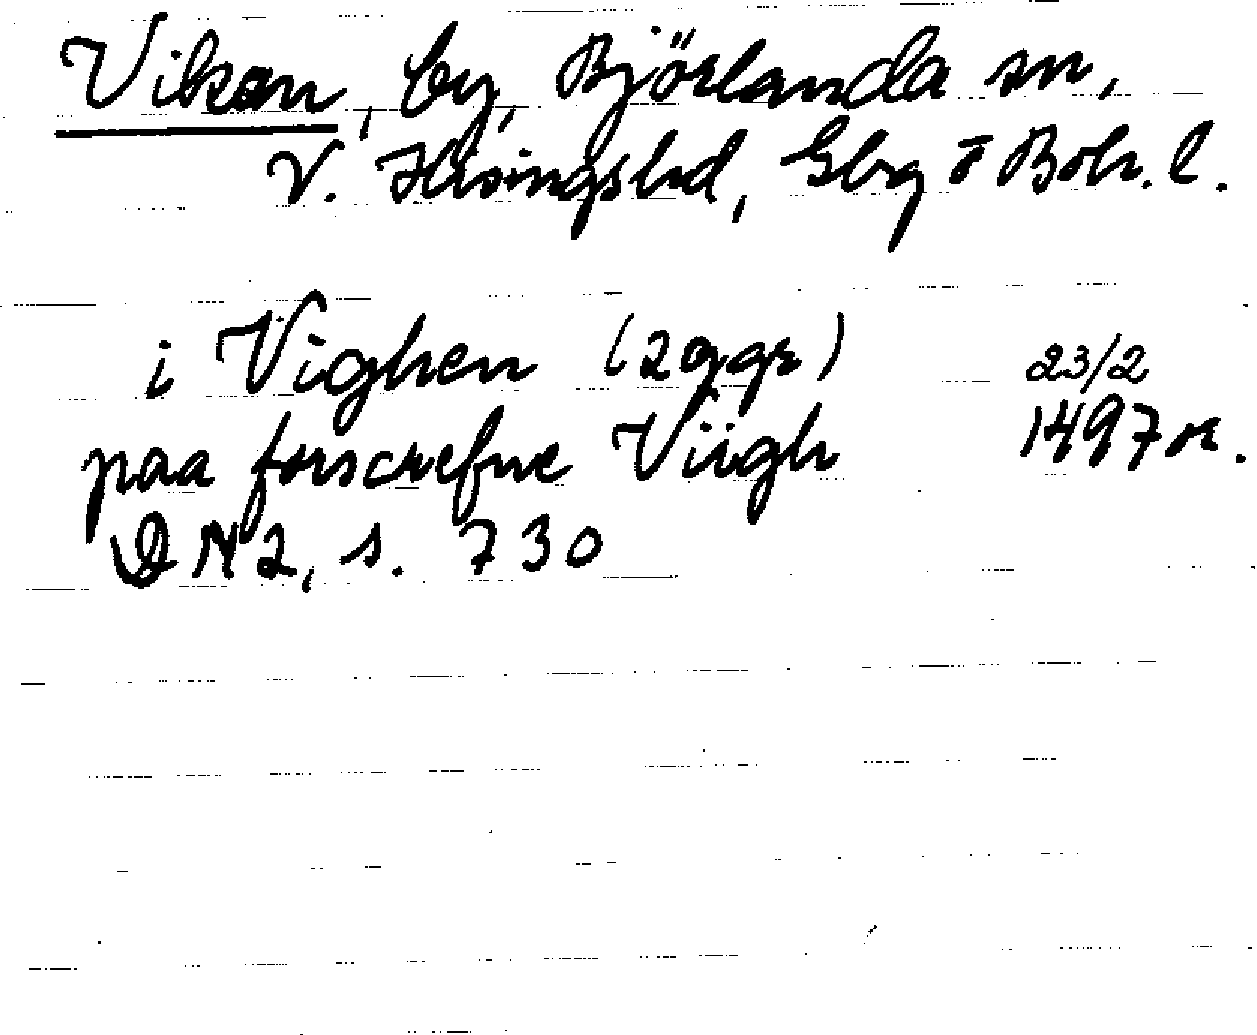 Vikan, by, Björlanda sn,
V. Hisings hd, Gbg o Boh. l.
i Vighen (2 ggr) 23/2
paa forscrefne Viigh 1497 or.
DN 2, s. 730